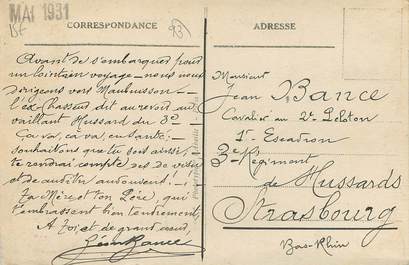 MAI 1931
CORRESPONDANCE
ADRESSE
Avant de s'embarquer pour
un lointain voyage - nous nous
dirigeons vers Maubuisson. -
l'ex-chasseur dit au revoir au
vaillant Hussard du 3e
Ça va, ça va, en santé; -
souhaitons que tu sois ainsi, -
te rendrai compte de visu
et de auditu au
Ta Mère et ton Père, qui
t'embrassent bien tendrement,
A toi et de grand cœur,
Jean Bance
Monsieur
Jean Bance
Cavalier au 2e Peloton
1er Escadron
3e Régiment
de Hussards
Strasbourg
Bas-Rhin